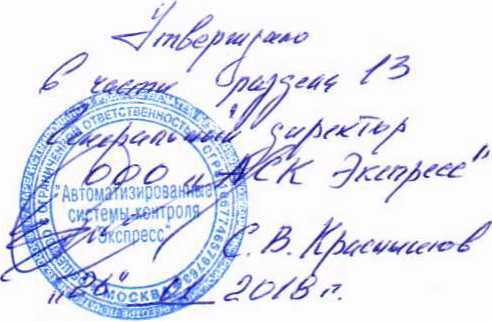 Утверждаю
в части раздела 13
Генеральный директор
ООО "АСК Экспресс"
"Автоматизированные
системы контроля
Экспресс"
С. В.
"26" 2018 г.
МОСКВА